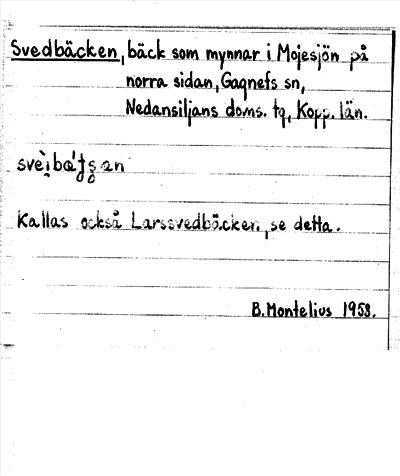 Svedbäcken, bäck som mynnar i Mojesjön på
norra sidan, Gagnefs sn,
Nedansiljans doms. tg, Kopp. län.
Kallas också Larssvedbäcken, se detta.
B. Montelius 1958.